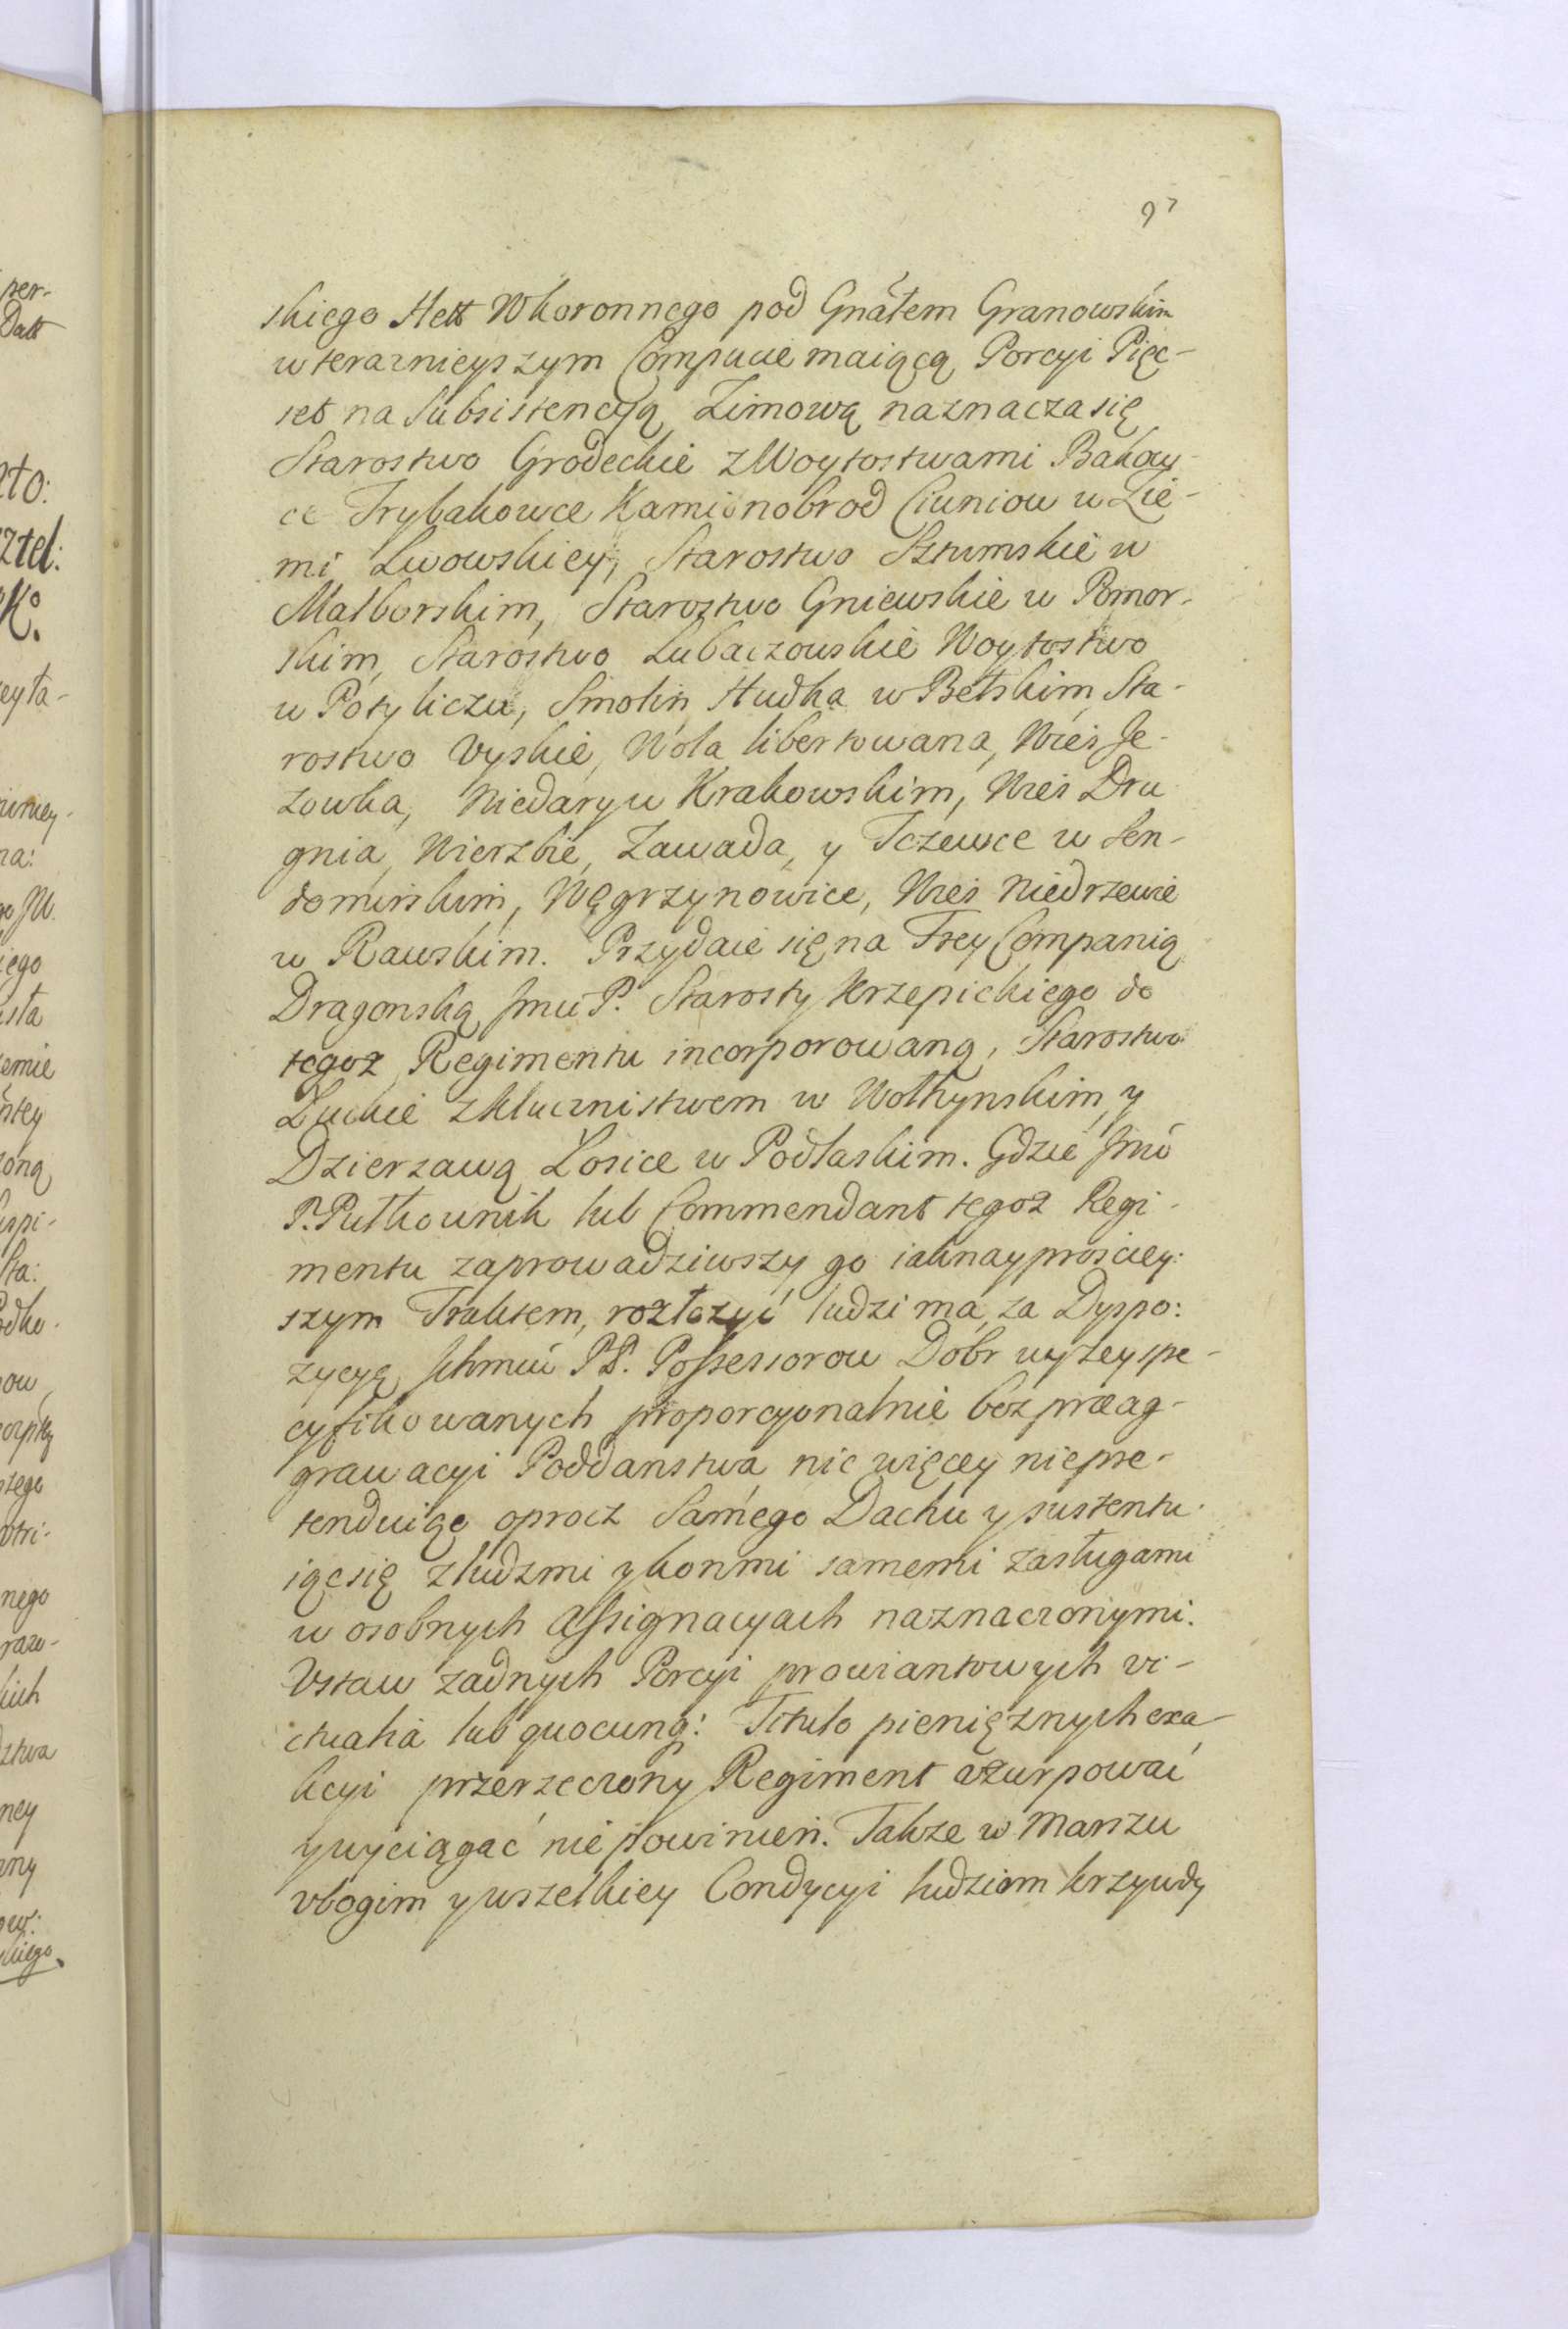 97
skiego Hett Wkoronnego pod Gnałem Granowskim
w teraznieyszym Compucie maiącą Porcyi Pięc-
set na Subsistencyą Zimową naznacza się
Starostwo Grodeckie z Woytostwami Bakowy-
ce Trybakowce Kamienobrod Ciuniow w Zie-
mi Lwowskiey, Starostwo Sztumskie w
Malborskim, Starostwo Gniewskie w Pomor-
skim, Starostwo Lubaczowskie Woytostwo
w Potyliczu, Smolin Hudka w Bełskim, Sta-
rostwo Uyskie, Wola libertowana, Wieś Je-
zowka, Niedary w Krakowskim, Wieś Dru
gnia, Wierzbie, Zawada, y Tczewce w Sen-
domirskim, Węgrzynowice, Wieś Niedrzewie
w Rawskim. Przydaie się na Frey Companią
Dragonską Jmu P. Starosty Krzepickiego do
tegoz Regimentu incorporowaną, Starostwo
Łuckie z Klucznistwem w Wołhynskim, y
Dzierzawą Łosice w Podlaskim. Gdzie Jmć
P. Pułkownik lub Commendant tegoz Regi-
mentu zaprowadziwszy go iaknayprosciey:
szym Traktem, rozłozyć ludzi ma, za Dyspo:
zycyą Ichmciu PP. Possessorow Dobr wyzey spe-
cyfikowanych proporcyonalnie bez præag-
grawacyi Poddanstwa nic więcey niepre-
tenduiąc oprocz Samego Dachu y sustentu
iąc się z ludzmi y konmi samemi zasługami
w osobnych Assignacyach naznaczonymi.
Ustaw zadnych Porcyi prowiantowych vi-
ctualia lub quocunq: Titulo pienięznych exa-
kcyi przerzeczony Regiment uzurpować
y wyciągać nie powinien. Takze w Marszu
ubogim y wszelkiey Condycyi ludziom krzywdy